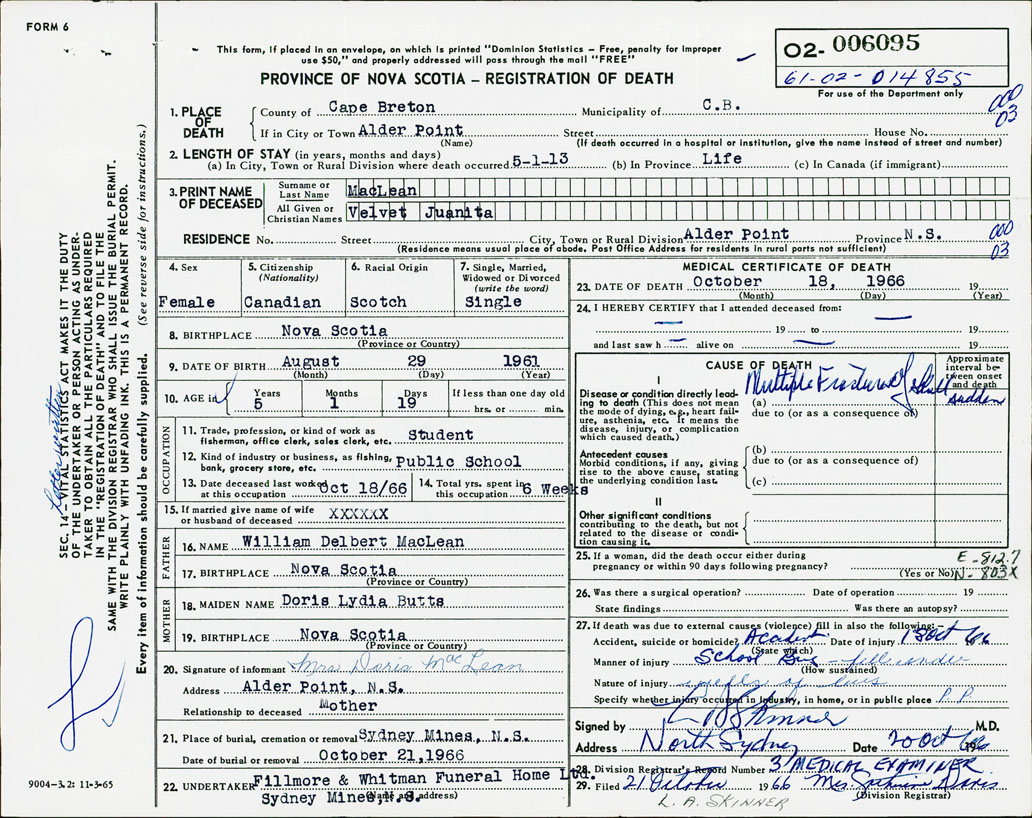 FORM 6
This form, if placed in an envelope, on which is printed "Dominion Statistics – Free, penalty for improper
use $50," and properly addressed will pass through the mail "FREE"
PROVINCE OF NOVA SCOTIA – REGISTRATION OF DEATH
02- 006095
61-02-014855
For use of the Department only
000
03
1. PLACE OF DEATH
County of Cape Breton Municipality of C.B.
If in City or Town Alder Point Street House No.
(Name) (If death occurred in a hospital or institution, give the name instead of street and number)
2. LENGTH OF STAY (in years, months and days)
(a) In City, Town or Rural Division where death occurred 5-1-13 (b) In Province Life (c) In Canada (if immigrant)
3. PRINT NAME OF DECEASED
Surname or Last Name MacLean
All Given or Christian Names Velvet Juanita
RESIDENCE No. Street City, Town or Rural Division Alder Point Province N.S.
(Residence means usual place of abode. Post Office Address for residents in rural parts not sufficient)
000
03
4. Sex
Female
5. Citizenship
(Nationality)
Canadian
6. Racial Origin
Scotch
7. Single, Married,
Widowed or Divorced
(write the word)
Single
8. BIRTHPLACE Nova Scotia
(Province or Country)
9. DATE OF BIRTH August 29 1961
(Month) (Day) (Year)
10. AGE in
Years Months Days If less than one day old
5 1 19 hrs. or min.
OCCUPATION
11. Trade, profession, or kind of work as
fisherman, office clerk, sales clerk, etc. Student
12. Kind of industry or business, as fishing,
bank, grocery store, etc. Public School
13. Date deceased last worked
at this occupation Oct 18/66
14. Total yrs. spent in
this occupation 6 Weeks
15. If married give name of wife
or husband of deceased XXXXXX
FATHER
16. NAME William Delbert MacLean
17. BIRTHPLACE Nova Scotia
(Province or Country)
MOTHER
18. MAIDEN NAME Doris Lydia Butts
19. BIRTHPLACE Nova Scotia
(Province or Country)
20. Signature of informant Mrs Doris MacLean
Address Alder Point, N.S.
Relationship to deceased Mother
21. Place of burial, cremation or removal Sydney Mines, N.S.
Date of burial or removal October 21,1966
22. UNDERTAKER Fillmore & Whitman Funeral Home Ltd.
Sydney Mines,N.S.
(Name and address)
MEDICAL CERTIFICATE OF DEATH
23. DATE OF DEATH October 18, 1966 19
(Month) (Day) (Year)
24. I HEREBY CERTIFY that I attended deceased from:
19 to 19
and last saw h alive on 19
CAUSE OF DEATH
Approximate
interval be-
tween onset
and death
I
Disease or condition directly lead-
ing to death (This does not mean
the mode of dying, e.g., heart fail-
ure, asthenia, etc. It means the
disease, injury, or complication
which caused death.)
(a) Multiple Fractures of skull sudden
due to (or as a consequence of)
Antecedent causes
Morbid conditions, if any, giving
rise to the above cause, stating
the underlying condition last.
(b)
due to (or as a consequence of)
(c)
II
Other significant conditions
contributing to the death, but not
related to the disease or condi-
tion causing it.
25. If a woman, did the death occur either during
pregnancy or within 90 days following pregnancy?
(Yes or No)
E - 812.7
N - 803X
26. Was there a surgical operation? Date of operation 19
State findings Was there an autopsy?
27. If death was due to external causes (violence) fill in also the following:–
Accident, suicide or homicide? Accident Date of injury 18 Oct 66
(State which)
Manner of injury School Bus – fell under
(How sustained)
Nature of injury wheels of bus
Specify whether injury occurred in industry, in home, or in public place P.P.
Signed by L A Skinner M.D.
Address North Sydney Date 20 Oct 1966
MEDICAL EXAMINER
28. Division Registrar's Record Number 3
29. Filed 21 October 1966 Mrs.
(Division Registrar)
L. A. SKINNER
SEC. 14 – VITAL STATISTICS ACT MAKES IT THE DUTY
OF THE UNDERTAKER OR PERSON ACTING AS UNDER-
TAKER TO OBTAIN ALL THE PARTICULARS REQUIRED
IN THE "REGISTRATION OF DEATH" AND TO FILE THE
SAME WITH THE DIVISION REGISTRAR WHO SHALL ISSUE THE BURIAL PERMIT.
WRITE PLAINLY WITH UNFADING INK. THIS IS A PERMANENT RECORD.
Every item of information should be carefully supplied. (See reverse side for instructions.)
9004-3.2: 11-3-65